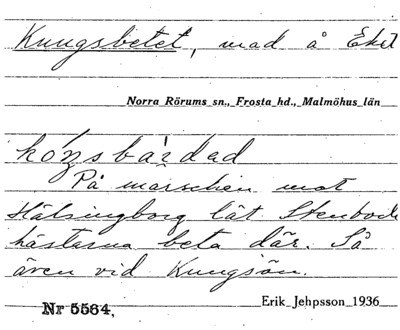 Kungsbetet, mad å Eket
Norra Rörums sn., Frosta hd., Malmöhus län
På marschen mot
Hälsingborg lät Stenbock
hästarna beta där. Så
även vid Kungsön.
Erik Jehpsson 1936
Nr 5564,